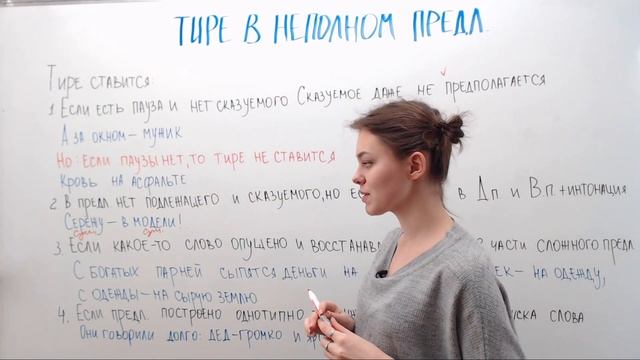 ТИРЕ В НЕПОЛНОМ ПРЕДЛ.
Тире ставится:
1. Если есть пауза и нет сказуемого Сказуемое даже не предполагается
А за окном – мужик
Но: Если паузы нет, то тире не ставится
Кровь на асфальте
2. В предл. нет подлежащего и сказуемого, но в Д.п и В.п. + интонация
Серёжу – в модели!
3. Если какое-то слово опущено и части сложного предл
С богатых парней сыпятся деньги на – на одежду,
с одежды – на сырую землю
4. Если предл. построено однотипно слова
Они говорили долго: дед – громко и